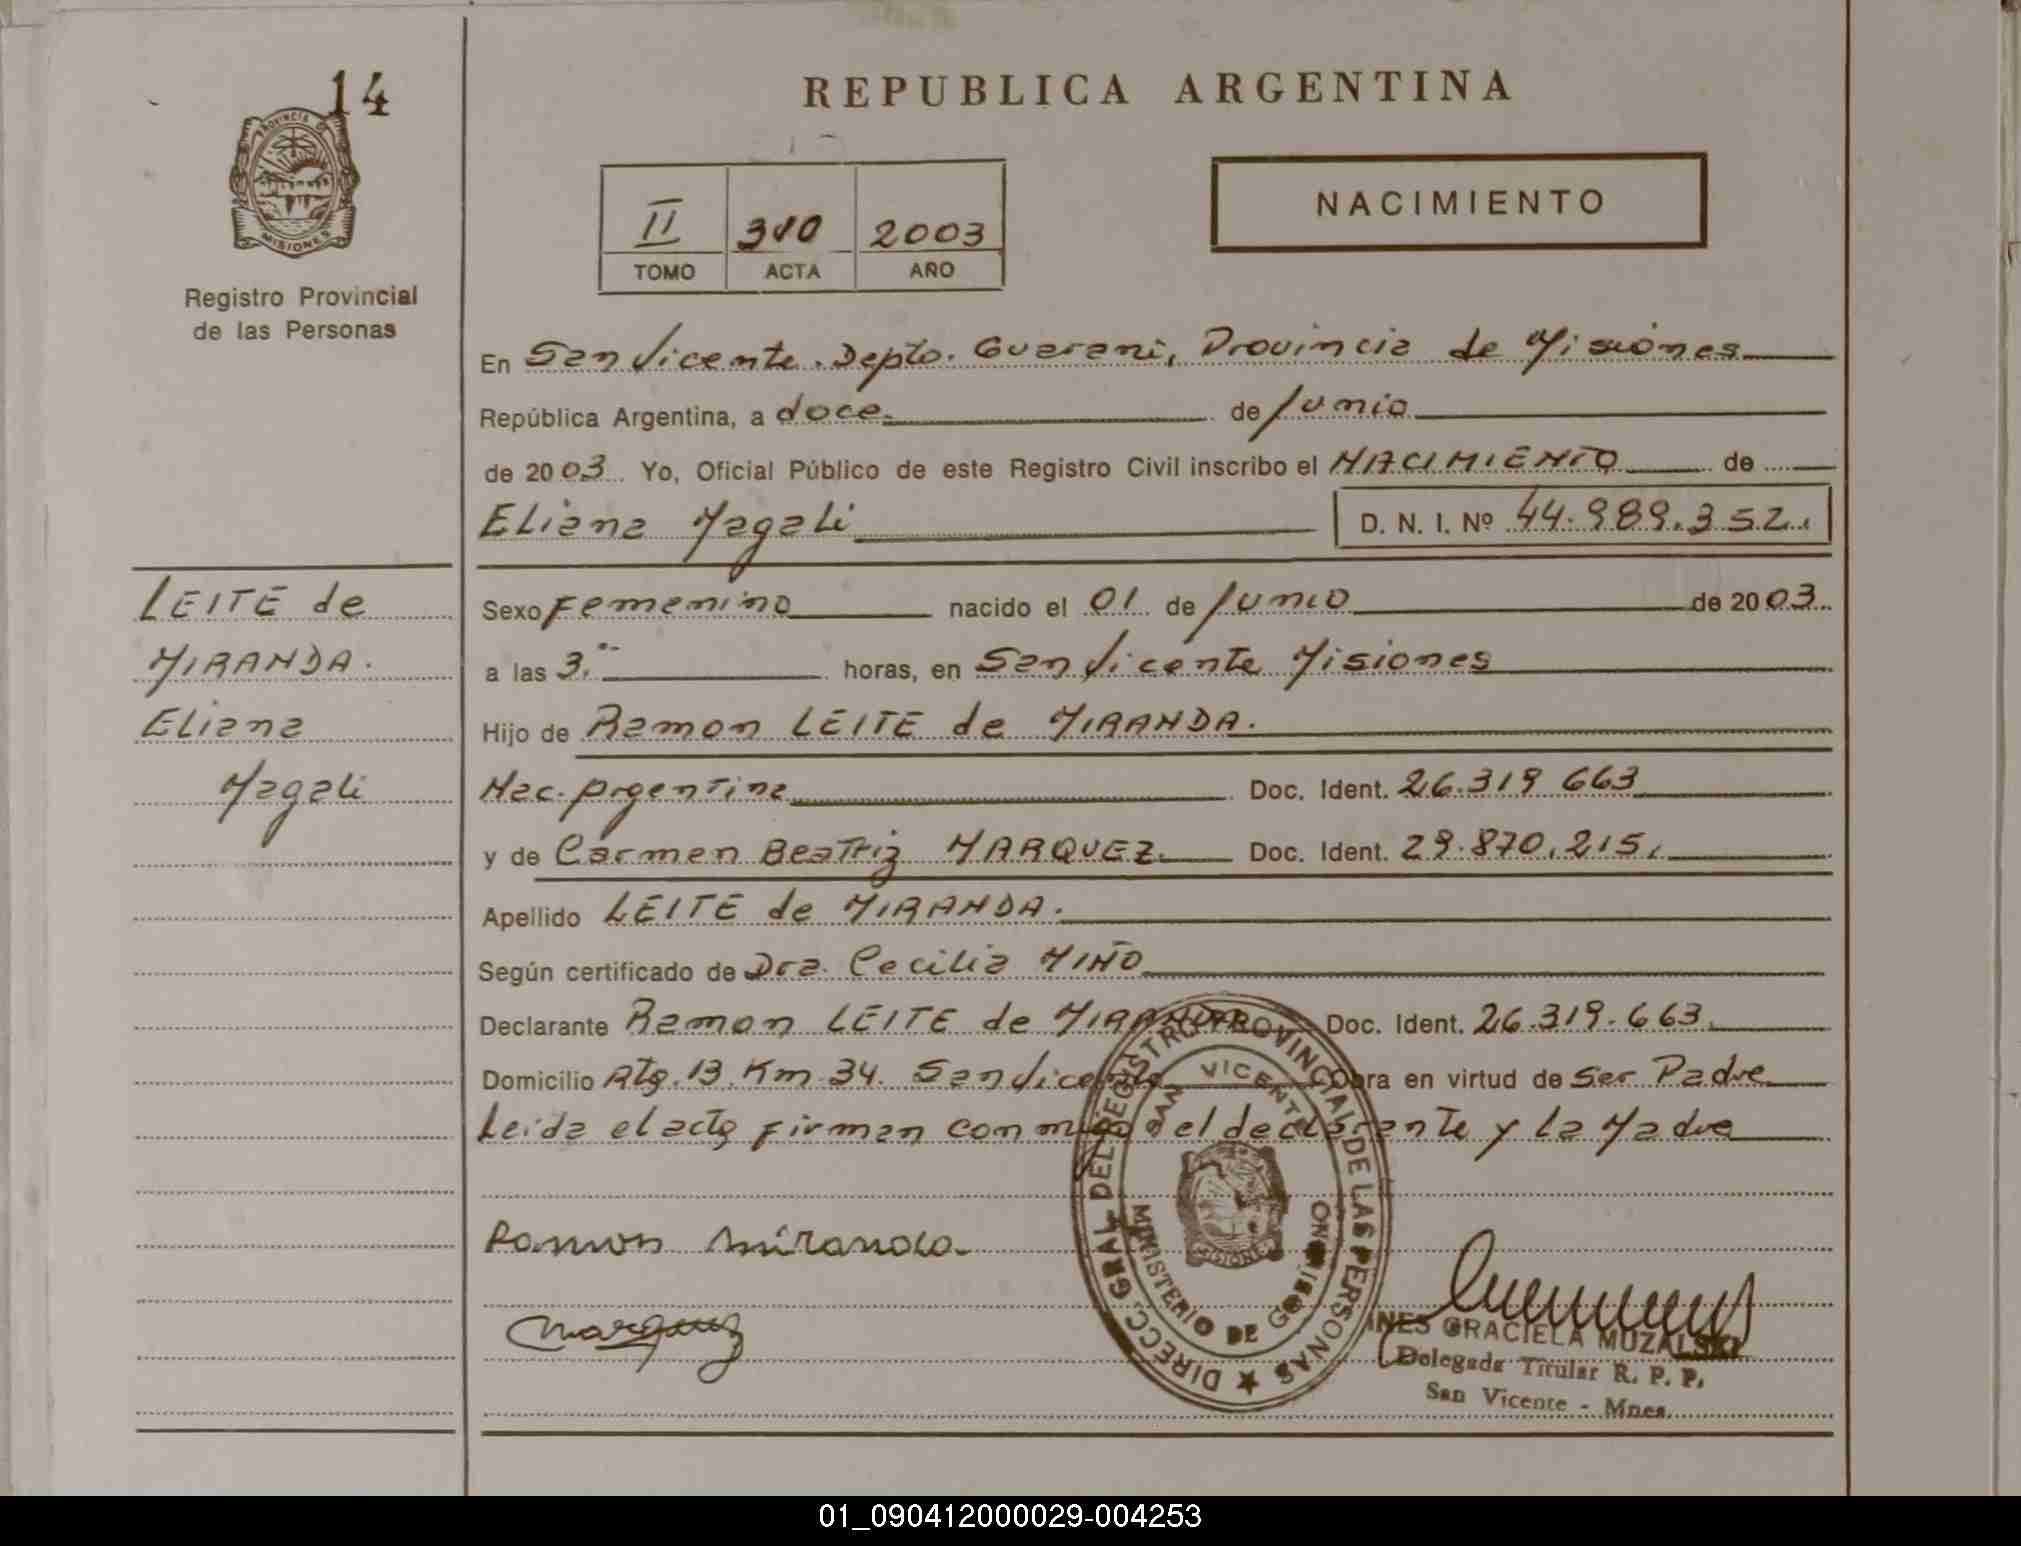 14
PROVINCIA DE
MISIONES
Registro Provincial
de las Personas
REPUBLICA ARGENTINA
II 310 2003
TOMO ACTA AÑO
NACIMIENTO
En San Vicente. Depto. Guarani, Provincia de Misiones
República Argentina, a doce. de Junio
de 2003 Yo, Oficial Público de este Registro Civil inscribo el NACIMIENTO de
Eliana Magali D. N. I. Nº 44.989.352.
LEITE de
MIRANDA.
Eliana
Magali
Sexo Femenino nacido el 01 de Junio de 2003
a las 3.- horas, en San Vicente Misiones
Hijo de Ramon LEITE de MIRANDA.
Nac. Argentina Doc. Ident. 26.319 663
y de Carmen Beatriz MARQUEZ. Doc. Ident. 29.870.215.
Apellido LEITE de MIRANDA.
Según certificado de Dra. Cecilia MIÑO
Declarante Ramon LEITE de MIRANDA Doc. Ident. 26.319.663.
Domicilio Rta. 13. Km 34. San Vicente Obra en virtud de Ser Padre
Leida el acta firman conmigo el declarante y la Madre
Ramon Miranda
Marquez
DIRECC. GRAL. DEL REGISTRO PROVINCIAL DE LAS PERSONAS
SAN VICENTE
MINISTERIO DE GOBIERNO
MISIONES
INES GRACIELA MUZALSKI
Delegada Titular R. P. P.
San Vicente - Mnes.
01_090412000029-004253